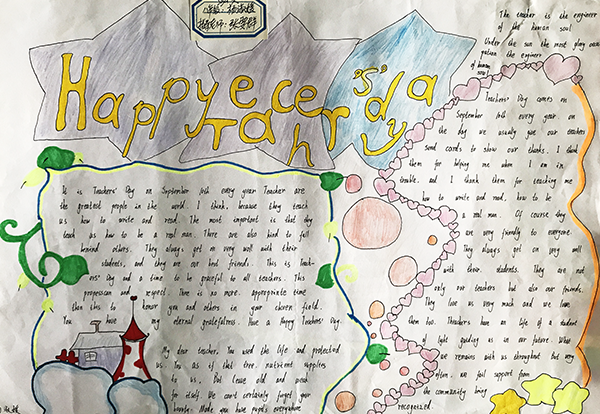 Happy Teacher's day
The teacher is the engineer
of the human soul
Under the sun the most glory
the engineer
of human
soul
It is Teachers' Day on September 10th every year Teacher are
the greatest people in the world. I think, because they teach
us how to write and read. The most important is that they
teach us how to be a real man. There are also kind to
behind others. They always get on very well with their
students, and they are our best friends. This is Teach-
ers' Day and a time to be graceful to all teachers. This
and respect. There is no more appropriate time
than this to honor you and others in your chosen field.
You have my eternal gratefulness. Have a Happy Teachers' Day.
My dear teacher, You used the life and protected
us. You as if that tree nutrient supplies
to us. But leave old and peak
for itself. We can't certainly forget your
Made you have pupils everywhere
Teachers' Day comes on
September 10th every year on
the day we usually give our teachers
send cards to show our thanks. I think
them for helping me when I am in
trouble. and I think them for teaching me
how to write and read, how to be
a real man. Of course they
are very friendly to everyone.
They always get on very well
with their students. They are not
only our teachers but also our friends.
They love us very much and we love
them too. Theachers have an life of a student
of light guiding us in our future. What
we remains with us throughout but very
often, we fail support from
the community being
recognized.